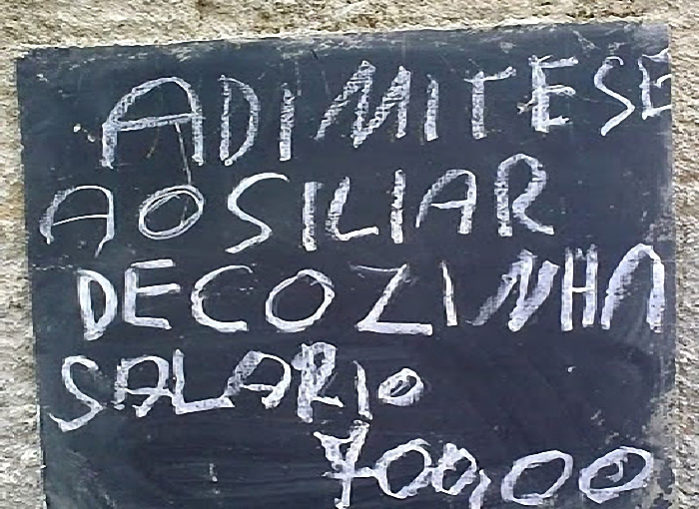 ADIMITESE
AOSILIAR
DECOZINHA
SALARIO
700,00